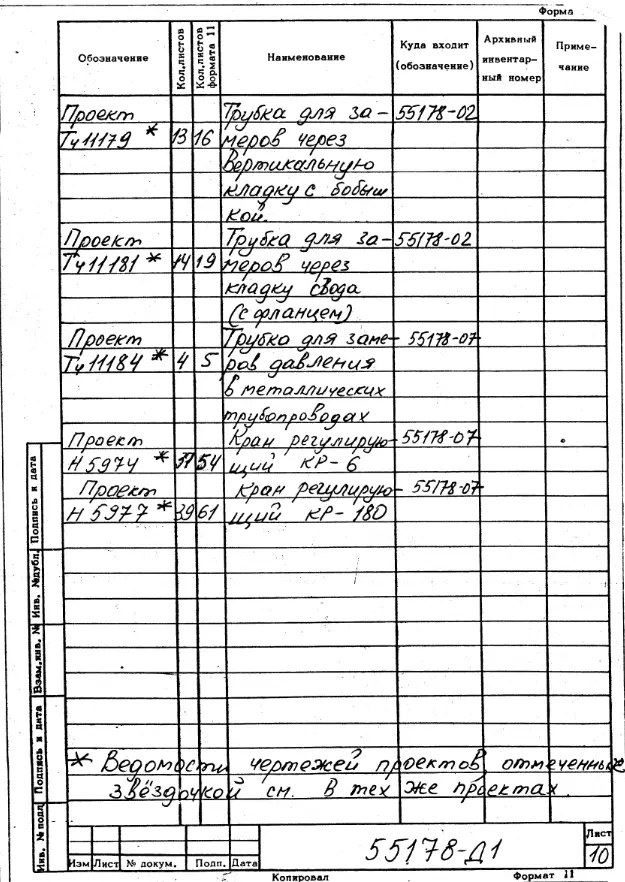 Форма
Обозначение Кол.листов Кол.листов формата 11 Наименование Куда входит (обозначение) Архивный инвентарный номер Примечание
Проект Трубка для за- 55178-02
Тч11179 * 13 16 меров через
вертикальную
кладку с бобыш
кой.
Проект Трубка для за- 55178-02
Тч11181 * 14 19 меров через
кладку свода
(с фланцем)
Проект Трубка для заме- 55178-07
Тч11184 * 4 5 ров давления
в металлических
трубопроводах
Проект Кран регулирую- 55178-07
Н5974 * 37 54 щий КР-6
Проект Кран регулирую- 55178-07
Н5977 * 39 61 щий КР-180
* Ведомости чертежей проектов отмеченные
звёздочкой см. в тех же проектах.
Инв. № подл Подпись и дата Взам.инв. № Инв. №дубл. Подпись и дата
55178-Д1
Лист
10
Изм Лист № докум. Подп. Дата
Копировал Формат 11